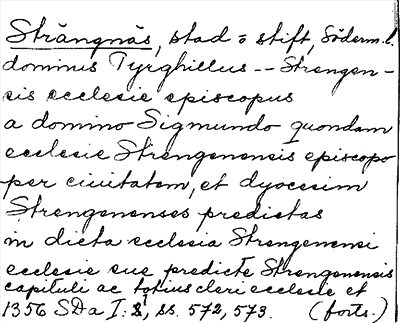 Strängnäs, stad o stift, Söderm. l.
dominus Tyrghillus -- Strengen-
sis ecclesie episcopus
a domino Sigmundo quondam
ecclesie Strengenensis episcopo
per ciuitatem, et dyocesim
Strengenenses predictas
in dicta ecclesia Strengenensi
ecclesie sue predicte Strengenensis
capituli ac totius cleri ecclesie et
1356 SDa I: 1, ss. 572, 573. (forts.)